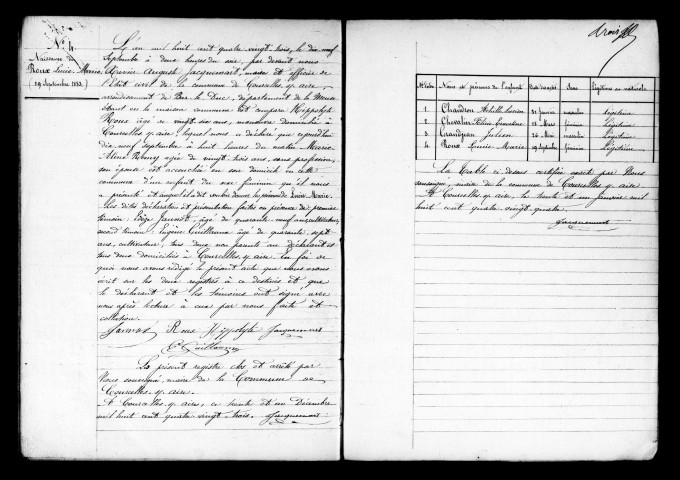 N° 4
Naissance de
Roux Lucie-Marie
19 Septembre 1883
L'an mil huit cent quatre vingt-trois, le dix neuf
Septembre à deux heures du soir, par devant nous
Auguste Jacquemart, maire et officier de
l'état civil de la commune de Courcelles s/ aire,
arrondissement de Bar le Duc, département de la Meuse
étant en la maison commune est comparu Hippolyte
Roux âgé de vingt six ans, manœuvre domicilié à
Courcelles s/ aire, lequel nous a déclaré que aujourd'hui
dix neuf septembre à huit heures du matin Marie
Remy âgée de vingt trois ans, sans profession,
son épouse est accouchée en son domicile en cette
commune d'un enfant du sexe féminin qu'il nous
a présenté et auquel il a dit vouloir donner les prénoms de Lucie-Marie.
Les dites déclaration et présentation faites en présence de premier
témoin: âgé de quarante neuf ans, cultivateur,
second témoin: Eugène Guillaume âgé de quarante sept
ans, cultivateur, tous deux non parents au déclarant et
tous deux domiciliés à Courcelles s/ aire. En foi de
quoi nous avons rédigé le présent acte que nous avons
écrit sur les deux registres à ce destinés et que
le déclarant et les témoins ont signé avec
nous après lecture à eux par nous faite et
collation.
Roux Hippolyte Jacquemart
E. Guillaume
Le présent registre clos et arrêté par
Nous soussigné, maire de la Commune de
Courcelles s/ aire.
A Courcelles s/ aire, ce trente et un Décembre
mil huit cent quatre vingt trois. Jacquemart
trois
N° Ordre Noms et prénoms de l'enfant Date de l'acte Sexe Légitime ou naturel
1 Chaudron Achille Lucien 21 janvier masculin légitime
2 Chevalier féminin Légitime
3 Grandjean Julien 26 Mai masculin Légitime
4 Roux Lucie Marie 19 Septembre féminin Légitime
La Table ci dessus certifiée exacte par Nous
soussigné, maire de la commune de Courcelles s/ aire
A Courcelles s/ aire, le trente et un janvier mil
huit cent quatre vingt quatre.
Jacquemart